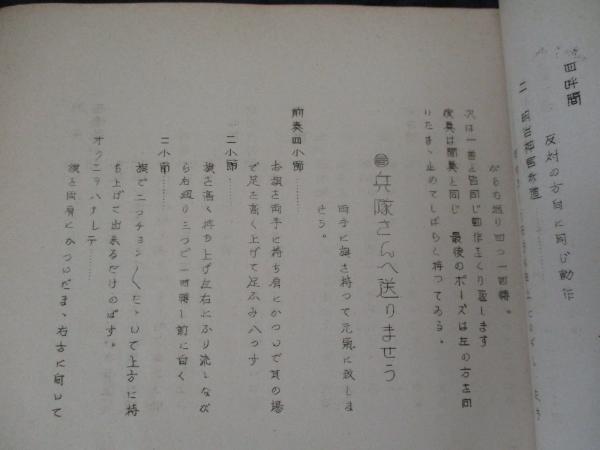 四呼間
反対の方向に同じ動作
がら右廻り四つで一回轉。
次は一番と皆同じ動作をくり返します
後奏は間奏と同じ 最後のポーズは左の方を向
りたまゝ止めてしばらく待つてゐる。
兵隊さんへ送りませう
両手に旗を持つて元氣に致しま
せう。
前奏四小節……
右旗を両手に持ち肩にかついで其の場
で足を高く上げて足ぶみ八つす
二小節……
旗を高く持ち上げ左右にふり流しなが
ら右廻り三つで一回轉し前に向く
二小節……
旗で二つチョン〱たゝいて上方に持
ち上げて出来るだけのばす。
オクニヲハナレテ……
旗を両肩にかついだまゝ右古に向いて